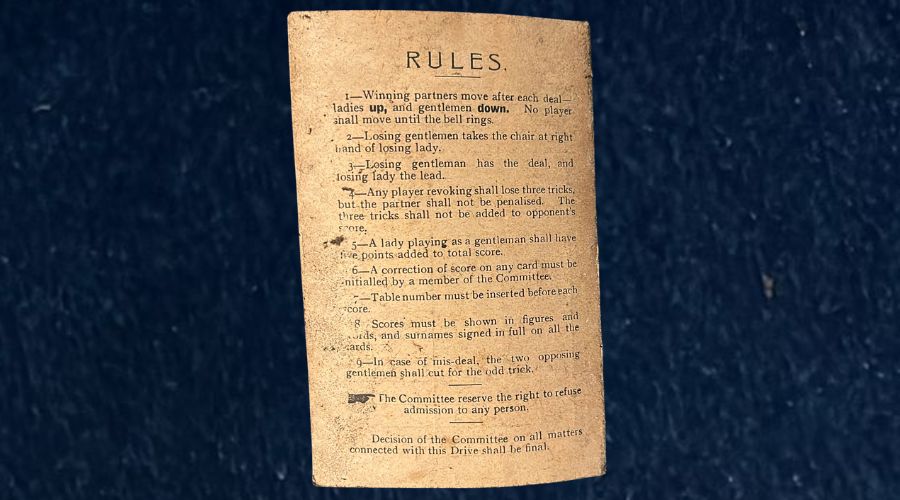 RULES.
1—Winning partners move after each deal—
ladies up, and gentlemen down. No player
shall move until the bell rings.
2—Losing gentlemen takes the chair at right
hand of losing lady.
3—Losing gentleman has the deal, and
losing lady the lead.
4—Any player revoking shall lose three tricks,
but the partner shall not be penalised. The
three tricks shall not be added to opponent's
score.
5—A lady playing as a gentleman shall have
five points added to total score.
6—A correction of score on any card must be
initialled by a member of the Committee.
7—Table number must be inserted before each
score.
8 Scores must be shown in figures and
words, and surnames signed in full on all the
cards.
9—In case of mis-deal, the two opposing
gentlemen shall cut for the odd trick.
The Committee reserve the right to refuse
admission to any person.
Decision of the Committee on all matters
connected with this Drive shall be final.